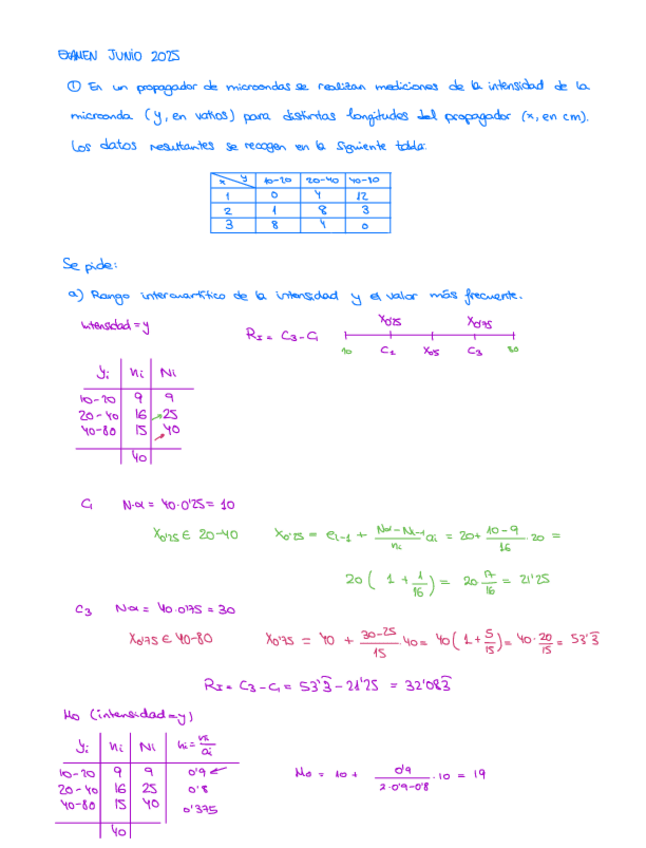 EXAMEN JUNIO 2025
① En un propagador de microondas se realizan mediciones de la intensidad de la
microonda (y, en vatios) para distintas longitudes del propagador (x, en cm).
Los datos resultantes se recogen en la siguiente tabla:
x y 10-20 20-40 40-80
1 0 4 12
2 1 8 3
3 8 4 0
Se pide:
a) Rango intercuartítico de la intensidad y el valor más frecuente.
Intensidad = y
R_I = C3 - C1
X0'25 X0'75
10 C1 X0'5 C3 80
yi ni Ni
10-20 9 9
20-40 16 25
40-80 15 40
40
C1 N·α = 40·0'25 = 10
X0'25 ∈ 20-40 X0'25 = ei-1 + (Nα - Ni-1)/ni · ai = 20 + (10-9)/16 · 20 =
20 (1 + 1/16) = 20 · 17/16 = 21'25
C3 Nα = 40·0'75 = 30
X0'75 ∈ 40-80 X0'75 = 40 + (30-25)/15 · 40 = 40 (1 + 5/15) = 40 · 20/15 = 53'3̅
R_I = C3 - C1 = 53'3̅ - 21'25 = 32'083̅
Mo (intensidad = y)
yi ni Ni hi = ni/ai
10-20 9 9 0'9
20-40 16 25 0'8
40-80 15 40 0'375
40
Mo = 10 + 0'9/(2·0'9-0'8) · 10 = 19